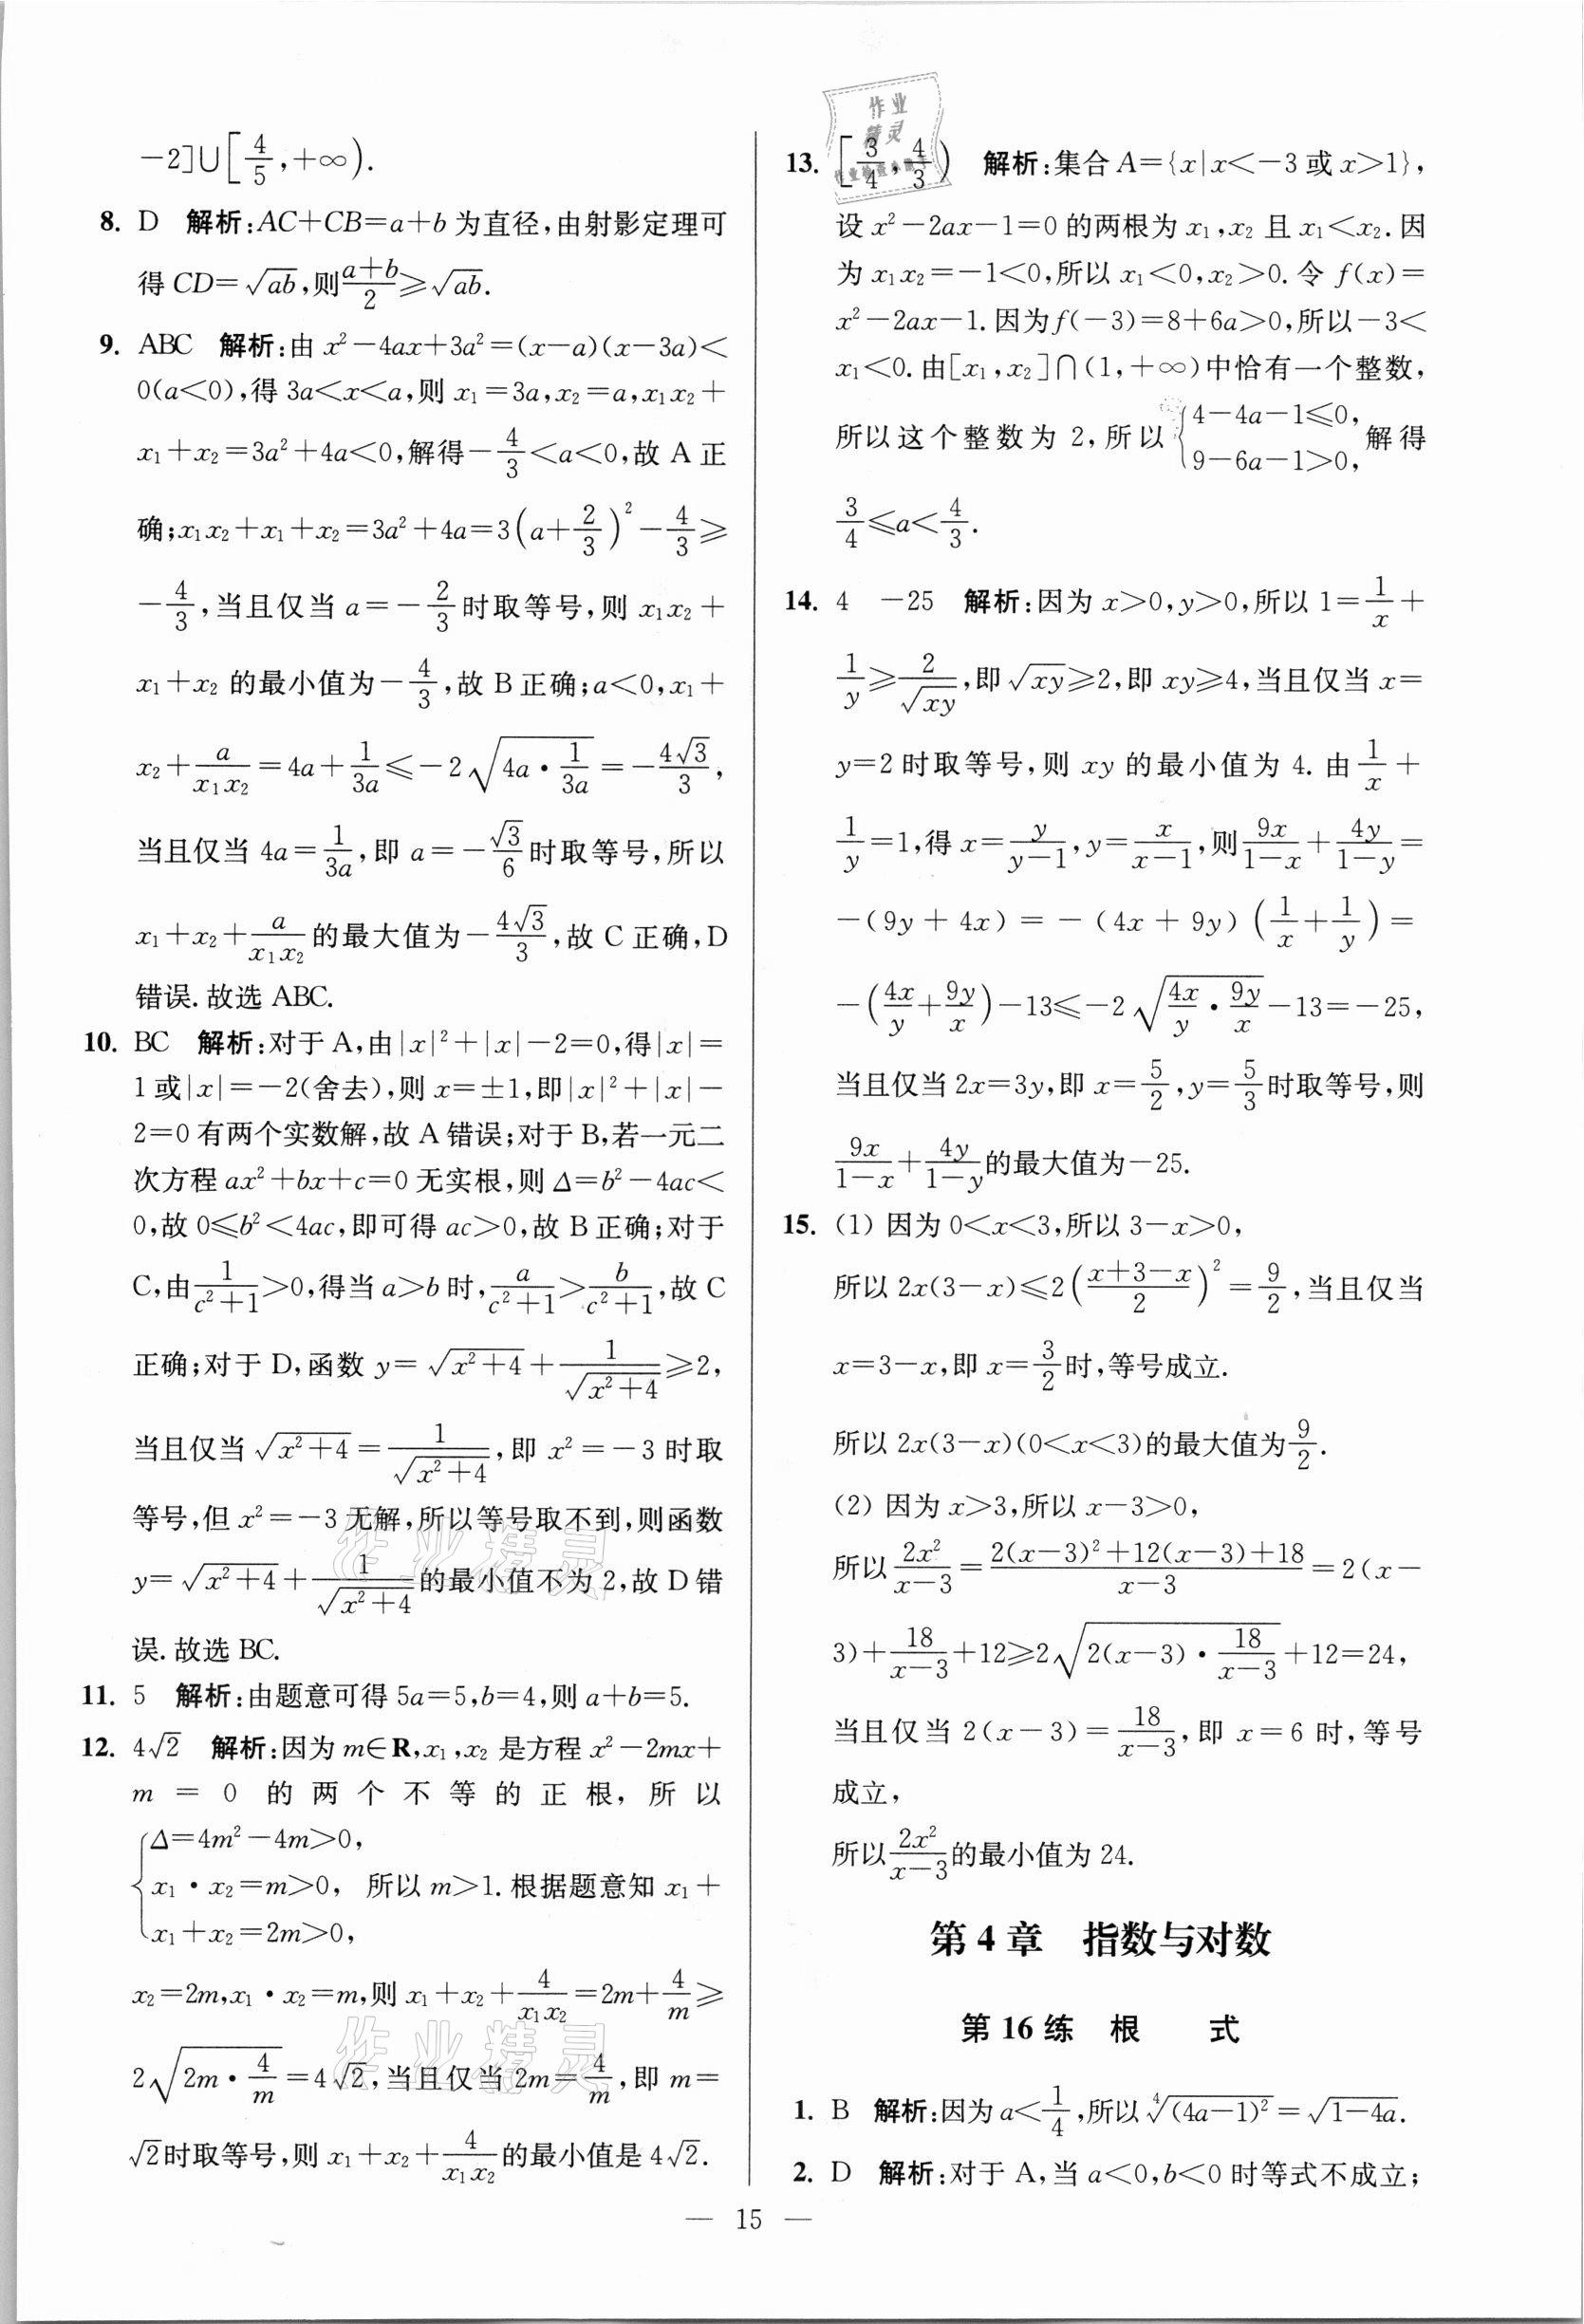 -2]∪[4/5,+∞).
8. D 解析:AC+CB=a+b为直径,由射影定理可
得CD=√ab,则(a+b)/2≥√ab.
9. ABC 解析:由x²-4ax+3a²=(x-a)(x-3a)<
0(a<0),得3a<x<a,则x₁=3a,x₂=a,x₁x₂+
x₁+x₂=3a²+4a<0,解得-4/3<a<0,故A正
确;x₁x₂+x₁+x₂=3a²+4a=3(a+2/3)²-4/3≥
-4/3,当且仅当a=-2/3时取等号,则x₁x₂+
x₁+x₂的最小值为-4/3,故B正确;a<0,x₁+
x₂+a/(x₁x₂)=4a+1/(3a)≤-2√(4a·1/(3a))=-4√3/3,
当且仅当4a=1/(3a),即a=-√3/6时取等号,所以
x₁+x₂+a/(x₁x₂)的最大值为-4√3/3,故C正确,D
错误.故选ABC.
10. BC 解析:对于A,由|x|²+|x|-2=0,得|x|=
1或|x|=-2(舍去),则x=±1,即|x|²+|x|-
2=0有两个实数解,故A错误;对于B,若一元二
次方程ax²+bx+c=0无实根,则Δ=b²-4ac<
0,故0≤b²<4ac,即可得ac>0,故B正确;对于
C,由1/(c²+1)>0,得当a>b时,a/(c²+1)>b/(c²+1),故C
正确;对于D,函数y=√(x²+4)+1/√(x²+4)≥2,
当且仅当√(x²+4)=1/√(x²+4),即x²=-3时取
等号,但x²=-3无解,所以等号取不到,则函数
y=√(x²+4)+1/√(x²+4)的最小值不为2,故D错
误.故选BC.
11. 5 解析:由题意可得5a=5,b=4,则a+b=5.
12. 4√2 解析:因为m∈R,x₁,x₂是方程x²-2mx+
m=0的两个不等的正根,所以
{Δ=4m²-4m>0,
x₁·x₂=m>0, 所以m>1.根据题意知x₁+
x₁+x₂=2m>0,
x₂=2m,x₁·x₂=m,则x₁+x₂+4/(x₁x₂)=2m+4/m≥
2√(2m·4/m)=4√2,当且仅当2m=4/m,即m=
√2时取等号,则x₁+x₂+4/(x₁x₂)的最小值是4√2.
13. [3/4,4/3) 解析:集合A={x|x<-3或x>1},
设x²-2ax-1=0的两根为x₁,x₂且x₁<x₂.因
为x₁x₂=-1<0,所以x₁<0,x₂>0.令f(x)=
x²-2ax-1.因为f(-3)=8+6a>0,所以-3<
x₁<0.由[x₁,x₂]∩(1,+∞)中恰有一个整数,
所以这个整数为2,所以{4-4a-1≤0, 9-6a-1>0, 解得
3/4≤a<4/3.
14. 4 -25 解析:因为x>0,y>0,所以1=1/x+
1/y≥2/√xy,即√xy≥2,即xy≥4,当且仅当x=
y=2时取等号,则xy的最小值为4.由1/x+
1/y=1,得x=y/(y-1),y=x/(x-1),则9x/(1-x)+4y/(1-y)=
-(9y+4x)=-(4x+9y)(1/x+1/y)=
-(4x/y+9y/x)-13≤-2√(4x/y·9y/x)-13=-25,
当且仅当2x=3y,即x=5/2,y=5/3时取等号,则
9x/(1-x)+4y/(1-y)的最大值为-25.
15. (1) 因为0<x<3,所以3-x>0,
所以2x(3-x)≤2((x+3-x)/2)²=9/2,当且仅当
x=3-x,即x=3/2时,等号成立.
所以2x(3-x)(0<x<3)的最大值为9/2.
(2) 因为x>3,所以x-3>0,
所以2x²/(x-3)=(2(x-3)²+12(x-3)+18)/(x-3)=2(x-
3)+18/(x-3)+12≥2√(2(x-3)·18/(x-3))+12=24,
当且仅当2(x-3)=18/(x-3),即x=6时,等号
成立,
所以2x²/(x-3)的最小值为24.
第4章 指数与对数
第16练 根 式
1. B 解析:因为a<1/4,所以⁴√(4a-1)²=√(1-4a).
2. D 解析:对于A,当a<0,b<0时等式不成立;
— 15 —
作业精灵
作业精灵
作业
精灵